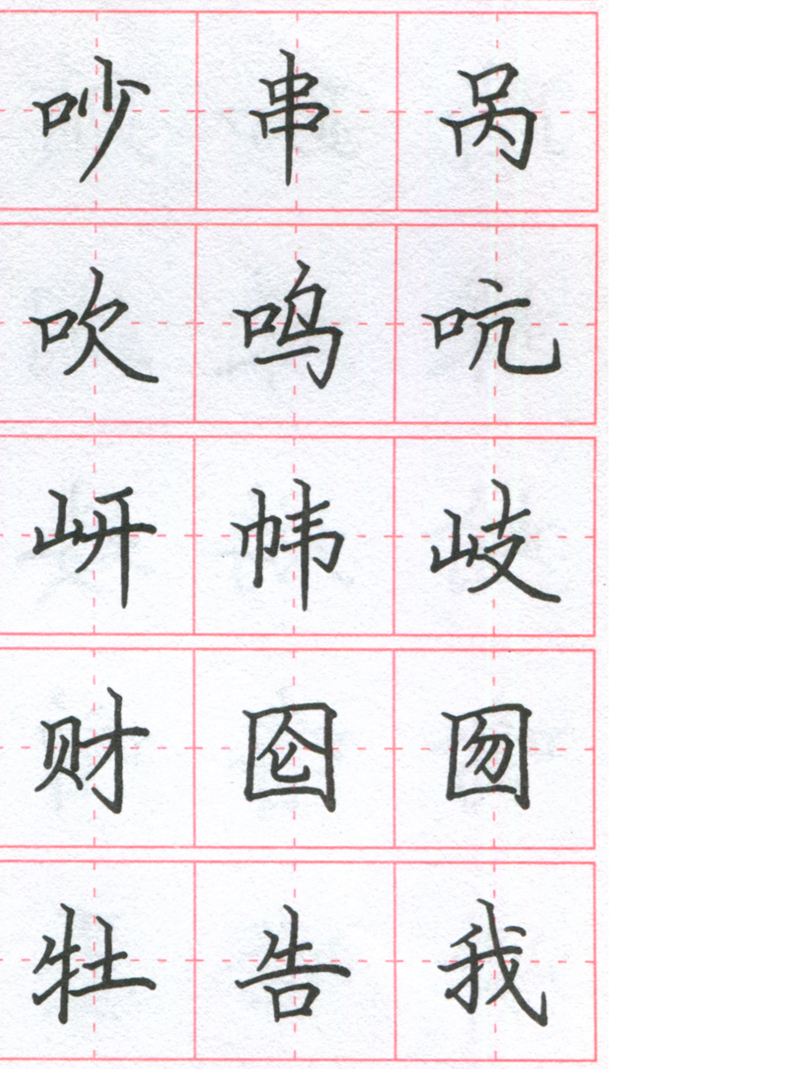 吵串呙
吹鸣吭
岍帏岐
财囵囫
牡告我